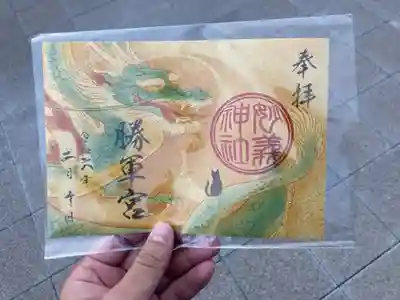 奉拝
妙義
神社
勝軍宮
令和六年
二月十日